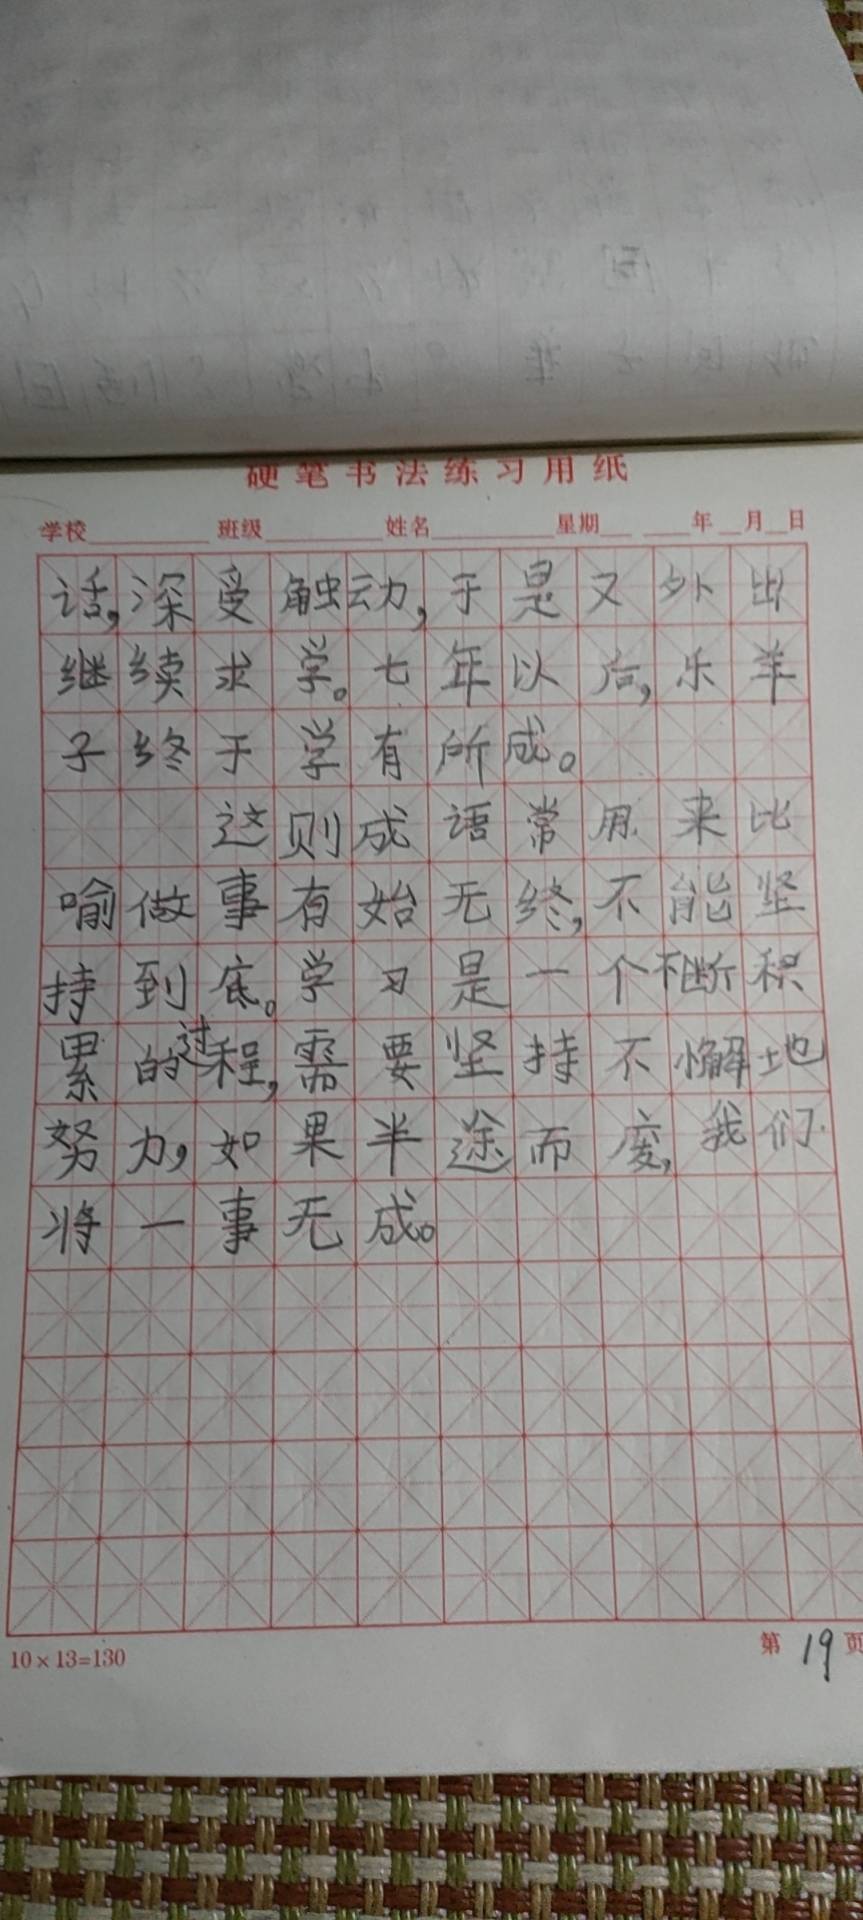 硬笔书法练习用纸
学校 班级 姓名 星期 年 月 日
话,深受触动,于是又外出
继续求学。七年以后,乐羊
子终于学有所成。
这则成语常用来比
喻做事有始无终,不能坚
持到底。学习是一个不断积
累的过程,需要坚持不懈地
努力,如果半途而废,我们
将一事无成。
10×13=130
第 19 页